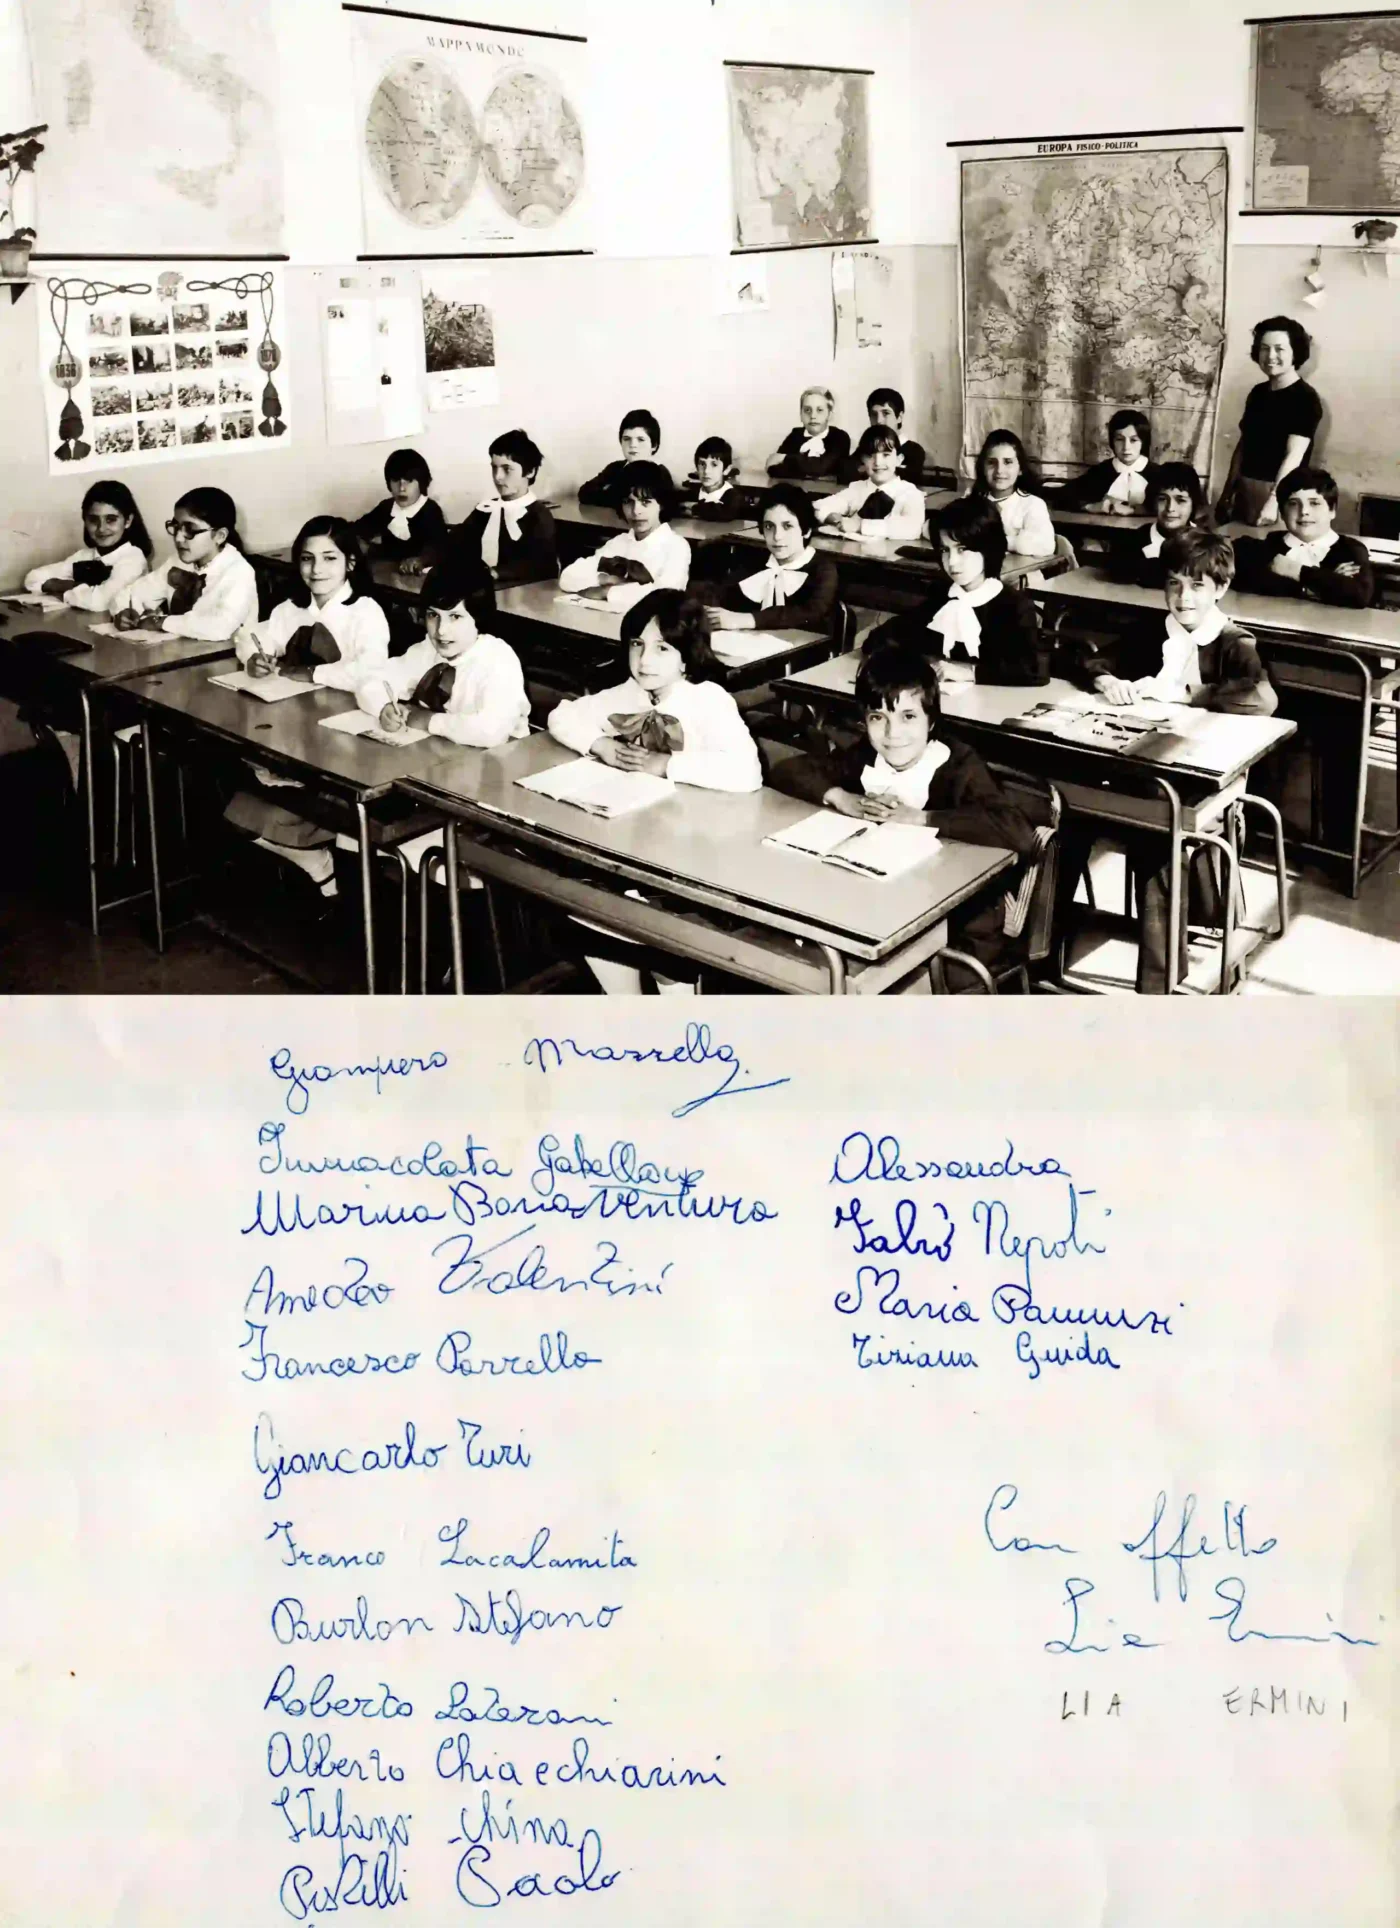 MAPPAMONDO
EUROPA FISICO-POLITICA
1836
Giampiero Mazzella
Immacolata Gabellone
Marina Bonaventura
Amedeo Valentini
Francesco Porzella
Giancarlo Turi
Franco Lacalamita
Burlon Stefano
Roberto Laterani
Alberto Chiacchiarini
Stefano China
Paolo
Alessandra
Fabio Nepoti
Maria
Tiziana Guida
Con affetto
Lia Ermini
LIA ERMINI